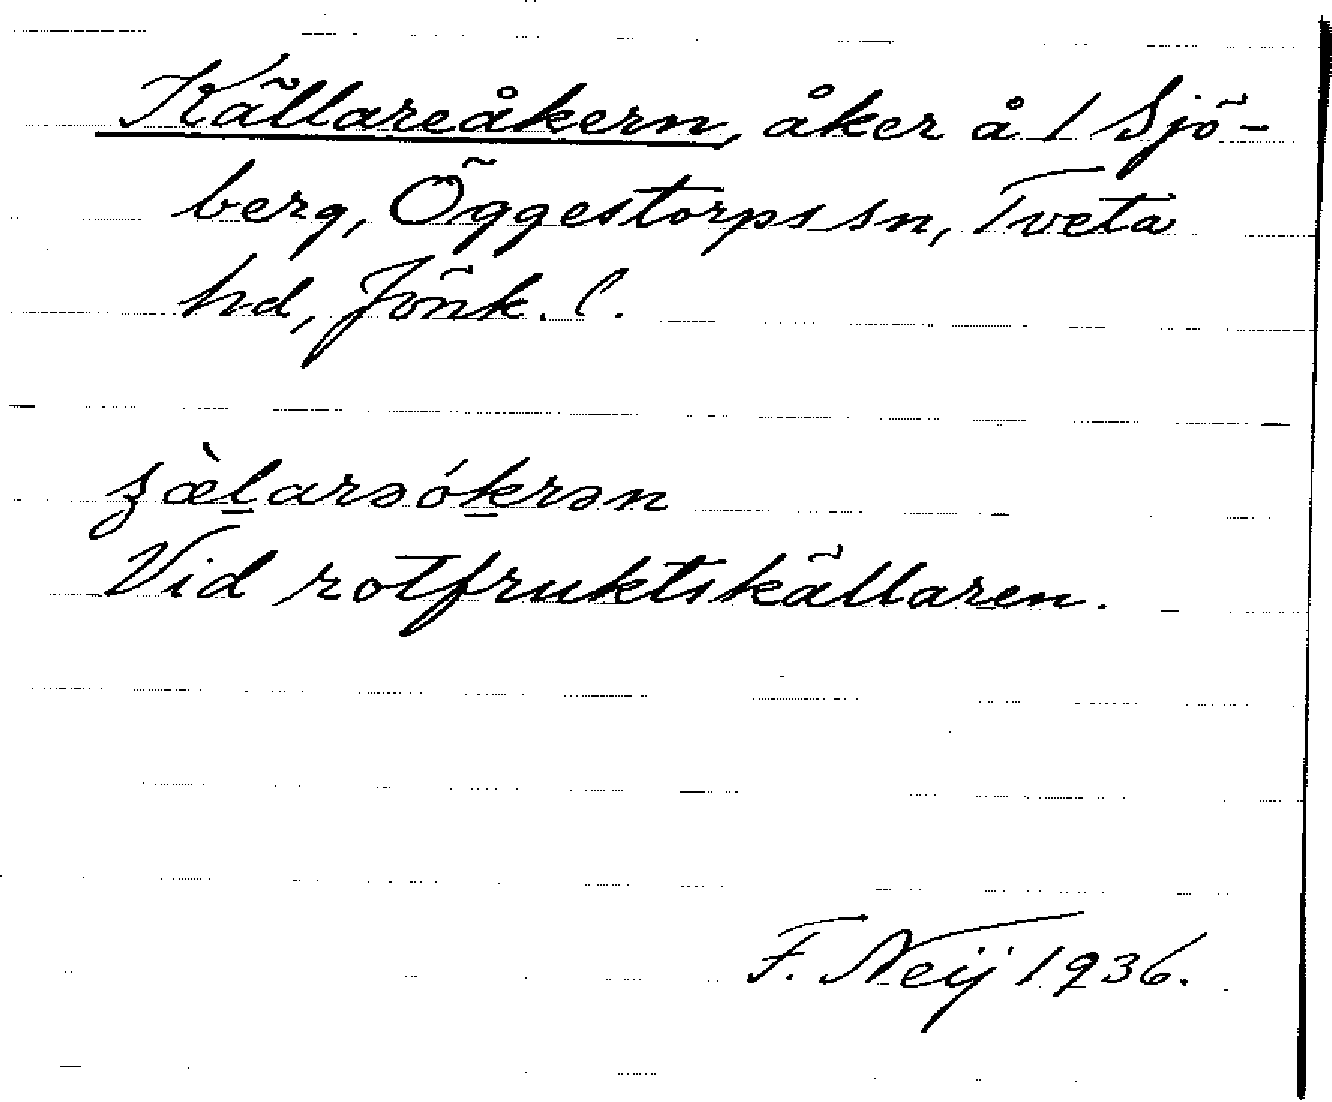 Källareåkern, åker å 1 Sjö-
berg, Öggestorps sn, Tveta
hd, Jönk. l.
ʒæ̀l̲arəók̲rən
Vid rotfruktskällaren.
F. Neij 1936.